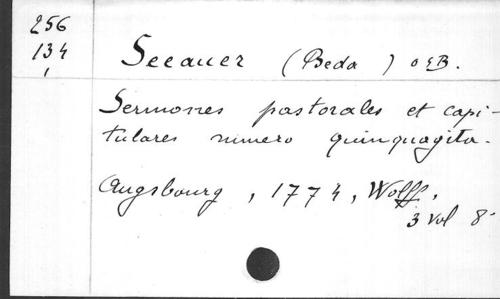 256
134
Seeauer (Beda) OSB.
Sermones pastorales et capi-
tulares numero quinquagita.
Augsbourg, 1774, Wolff,
3 vol 8°